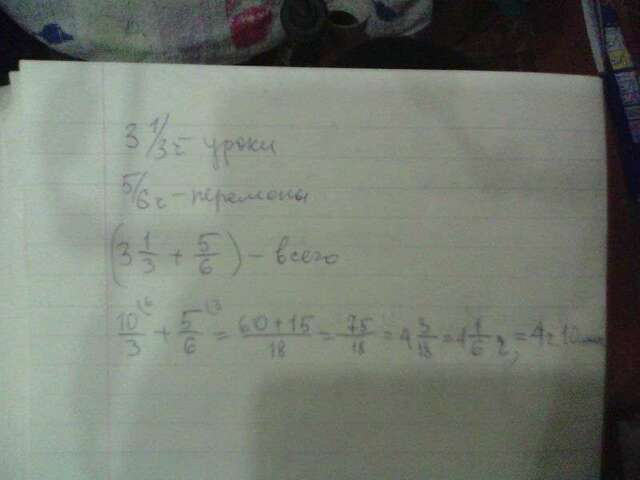 3 1/3 ч - уроки
5/6 ч - перемены
(3 1/3 + 5/6) - всего
10/3 (6 + 5/6 (3 = 60+15/18 = 75/18 = 4 3/18 = 4 1/6 ч, = 4ч 10мин